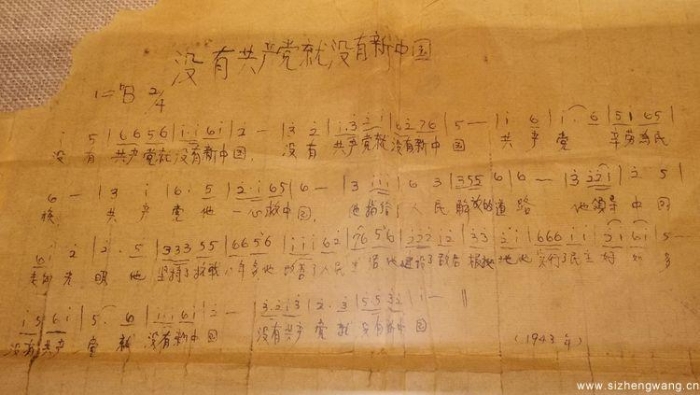 没有共产党就没有新中国
1=♭B 2/4
i 5 | 6 6 5 6 | i i 6 i | 2 — | 3 2 | i 3 2 i | 6 2 7 6 | 5 — | i 6 | i · 6 | 5 i 6 5 |
没有 共产党就没有新中国. 没有 共产党就没有新中国 共产党 辛劳为民
6 — | 3 i | 6 · 5 | 2 · i 6 5 | 6 — | 3 i i i | 6 3 | 3 5 5 | 6 6 — | 3 2 2 i | 2 5 |
族 共产党他 一心救中国, 他指给了人民解放的道路 他领导中国
6 i 2 | 2 · 5 | 3 3 3 5 5 | 6 6 5 6 | i i i 6 2 | 7 6 5 6 | 2 2 2 i 2 | 3 3 i i | 6 6 6 i i | 2 i 6 i | 5 —
走向光明 他坚持了抗战八年多他改善了人民生活他建设了敌后根据地他实行了民主好处多
i 5 6 i | 5 · 6 | i i 6 i | 2 — | 3 2 i 3 | 2 · 3 | 5 5 3 2 | i — ‖
没有共产党就没有新中国 没有共产党就没有新中国
(1943年)
www.sizhengwang.cn